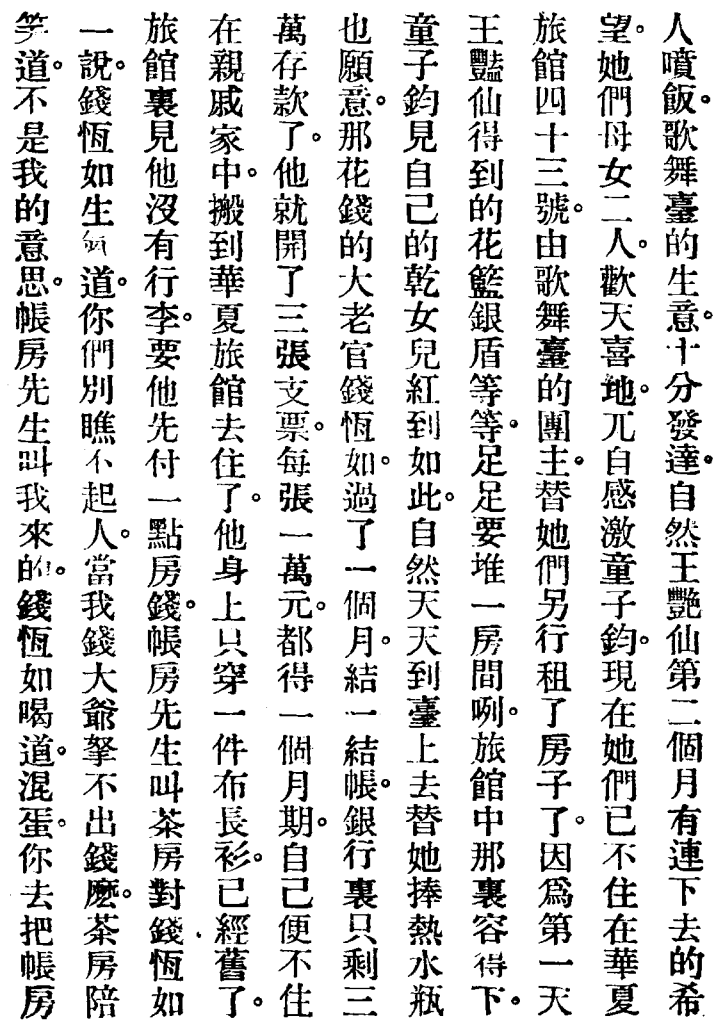 人噴飯。歌舞臺的生意。十分發達。自然王艷仙第二個月有連下去的希
望。她們母女二人。歡天喜地。兀自感激童子鈞。現在她們已不住在華夏
旅館四十三號。由歌舞臺的團主。替她們另行租了房子了。因爲第一天
王豔仙得到的花籃銀盾等等。足足要堆一房間咧。旅館中那裏容得下。
童子鈞見自己的乾女兒紅到如此。自然天天到臺上去替她捧熱水瓶
也願意。那花錢的大老官錢恆如。過了一個月。結一結帳。銀行裏只剩三
萬存款了。他就開了三張支票。每張一萬元。都得一個月期。自己便不住
在親戚家中。搬到華夏旅館去住了。他身上只穿一件布長衫。已經舊了。
旅館裏見他沒有行李。要他先付一點房錢。帳房先生叫茶房對錢恆如
一說。錢恆如生氣道。你們別瞧不起人。當我錢大爺拏不出錢麽。茶房陪
笑道。不是我的意思。帳房先生叫我來的。錢恆如喝道。混蛋。你去把帳房